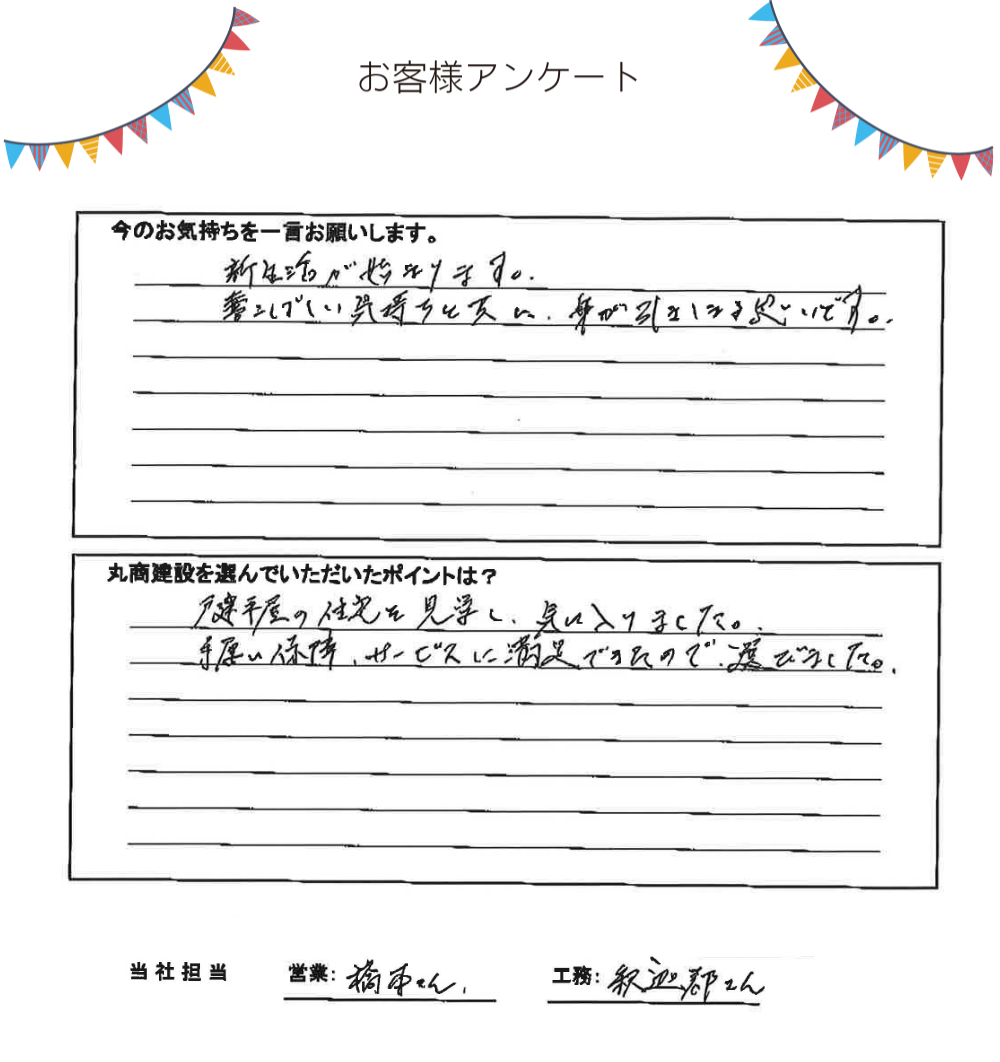 お客様アンケート
今のお気持ちを一言お願いします。
新生活が始まります。
喜こばしい気持ちと共に、身が引きしまる思いです。
丸商建設を選んでいただいたポイントは？
戸建平屋の住宅を見学し、気に入りました。
手厚い保障、サービスに満足できたので、選びました。
当社担当 営業: 橋本さん 工務: 釈迦郡さん